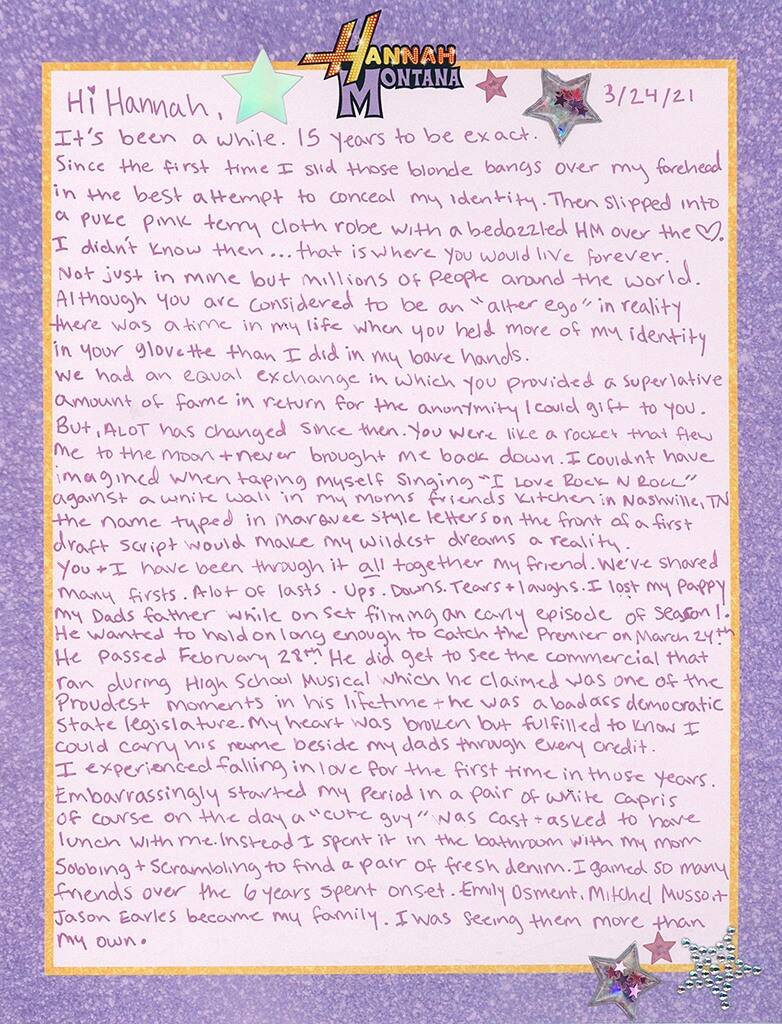 HANNAH
MONTANA
Hi Hannah,
3/24/21
It's been a while. 15 years to be exact.
Since the first time I slid those blonde bangs over my forehead
in the best attempt to conceal my identity. Then slipped into
a puke pink terry cloth robe with a bedazzled HM over the ♡.
I didn't know then... that is where you would live forever.
Not just in mine but millions of people around the world.
Although you are considered to be an "alter ego" in reality
there was a time in my life when you held more of my identity
in your glovette than I did in my bare hands.
We had an equal exchange in which you provided a superlative
amount of fame in return for the anonymity I could gift to you.
But, ALOT has changed since then. You were like a rocket that flew
me to the moon + never brought me back down. I couldnt have
imagined when taping myself singing "I LOVE ROCK N ROLL"
against a white wall in my moms friends kitchen in Nashville, TN
the name typed in marquee style letters on the front of a first
draft script would make my wildest dreams a reality.
You + I have been through it all together my friend. We've shared
many firsts. Alot of lasts. Ups. Downs. Tears + laughs. I lost my pappy
my Dads father while on set filming an early episode of season 1.
He wanted to hold on long enough to catch the Premier on March 24th
He passed February 28th. He did get to see the commercial that
ran during High School Musical which he claimed was one of the
Proudest moments in his lifetime + he was a badass democratic
State legislature. My heart was broken but fulfilled to know I
could carry his name beside my dads through every credit.
I experienced falling in love for the first time in those years.
Embarrassingly started my period in a pair of white capris
of course on the day a "cute guy" was cast + asked to have
lunch with me. Instead I spent it in the bathroom with my mom
Sobbing + Scrambling to find a pair of fresh denim. I gained so many
friends over the 6 years spent onset. Emily Osment, Mitchel Musso, +
Jason Earles became my family. I was seeing them more than
my own.